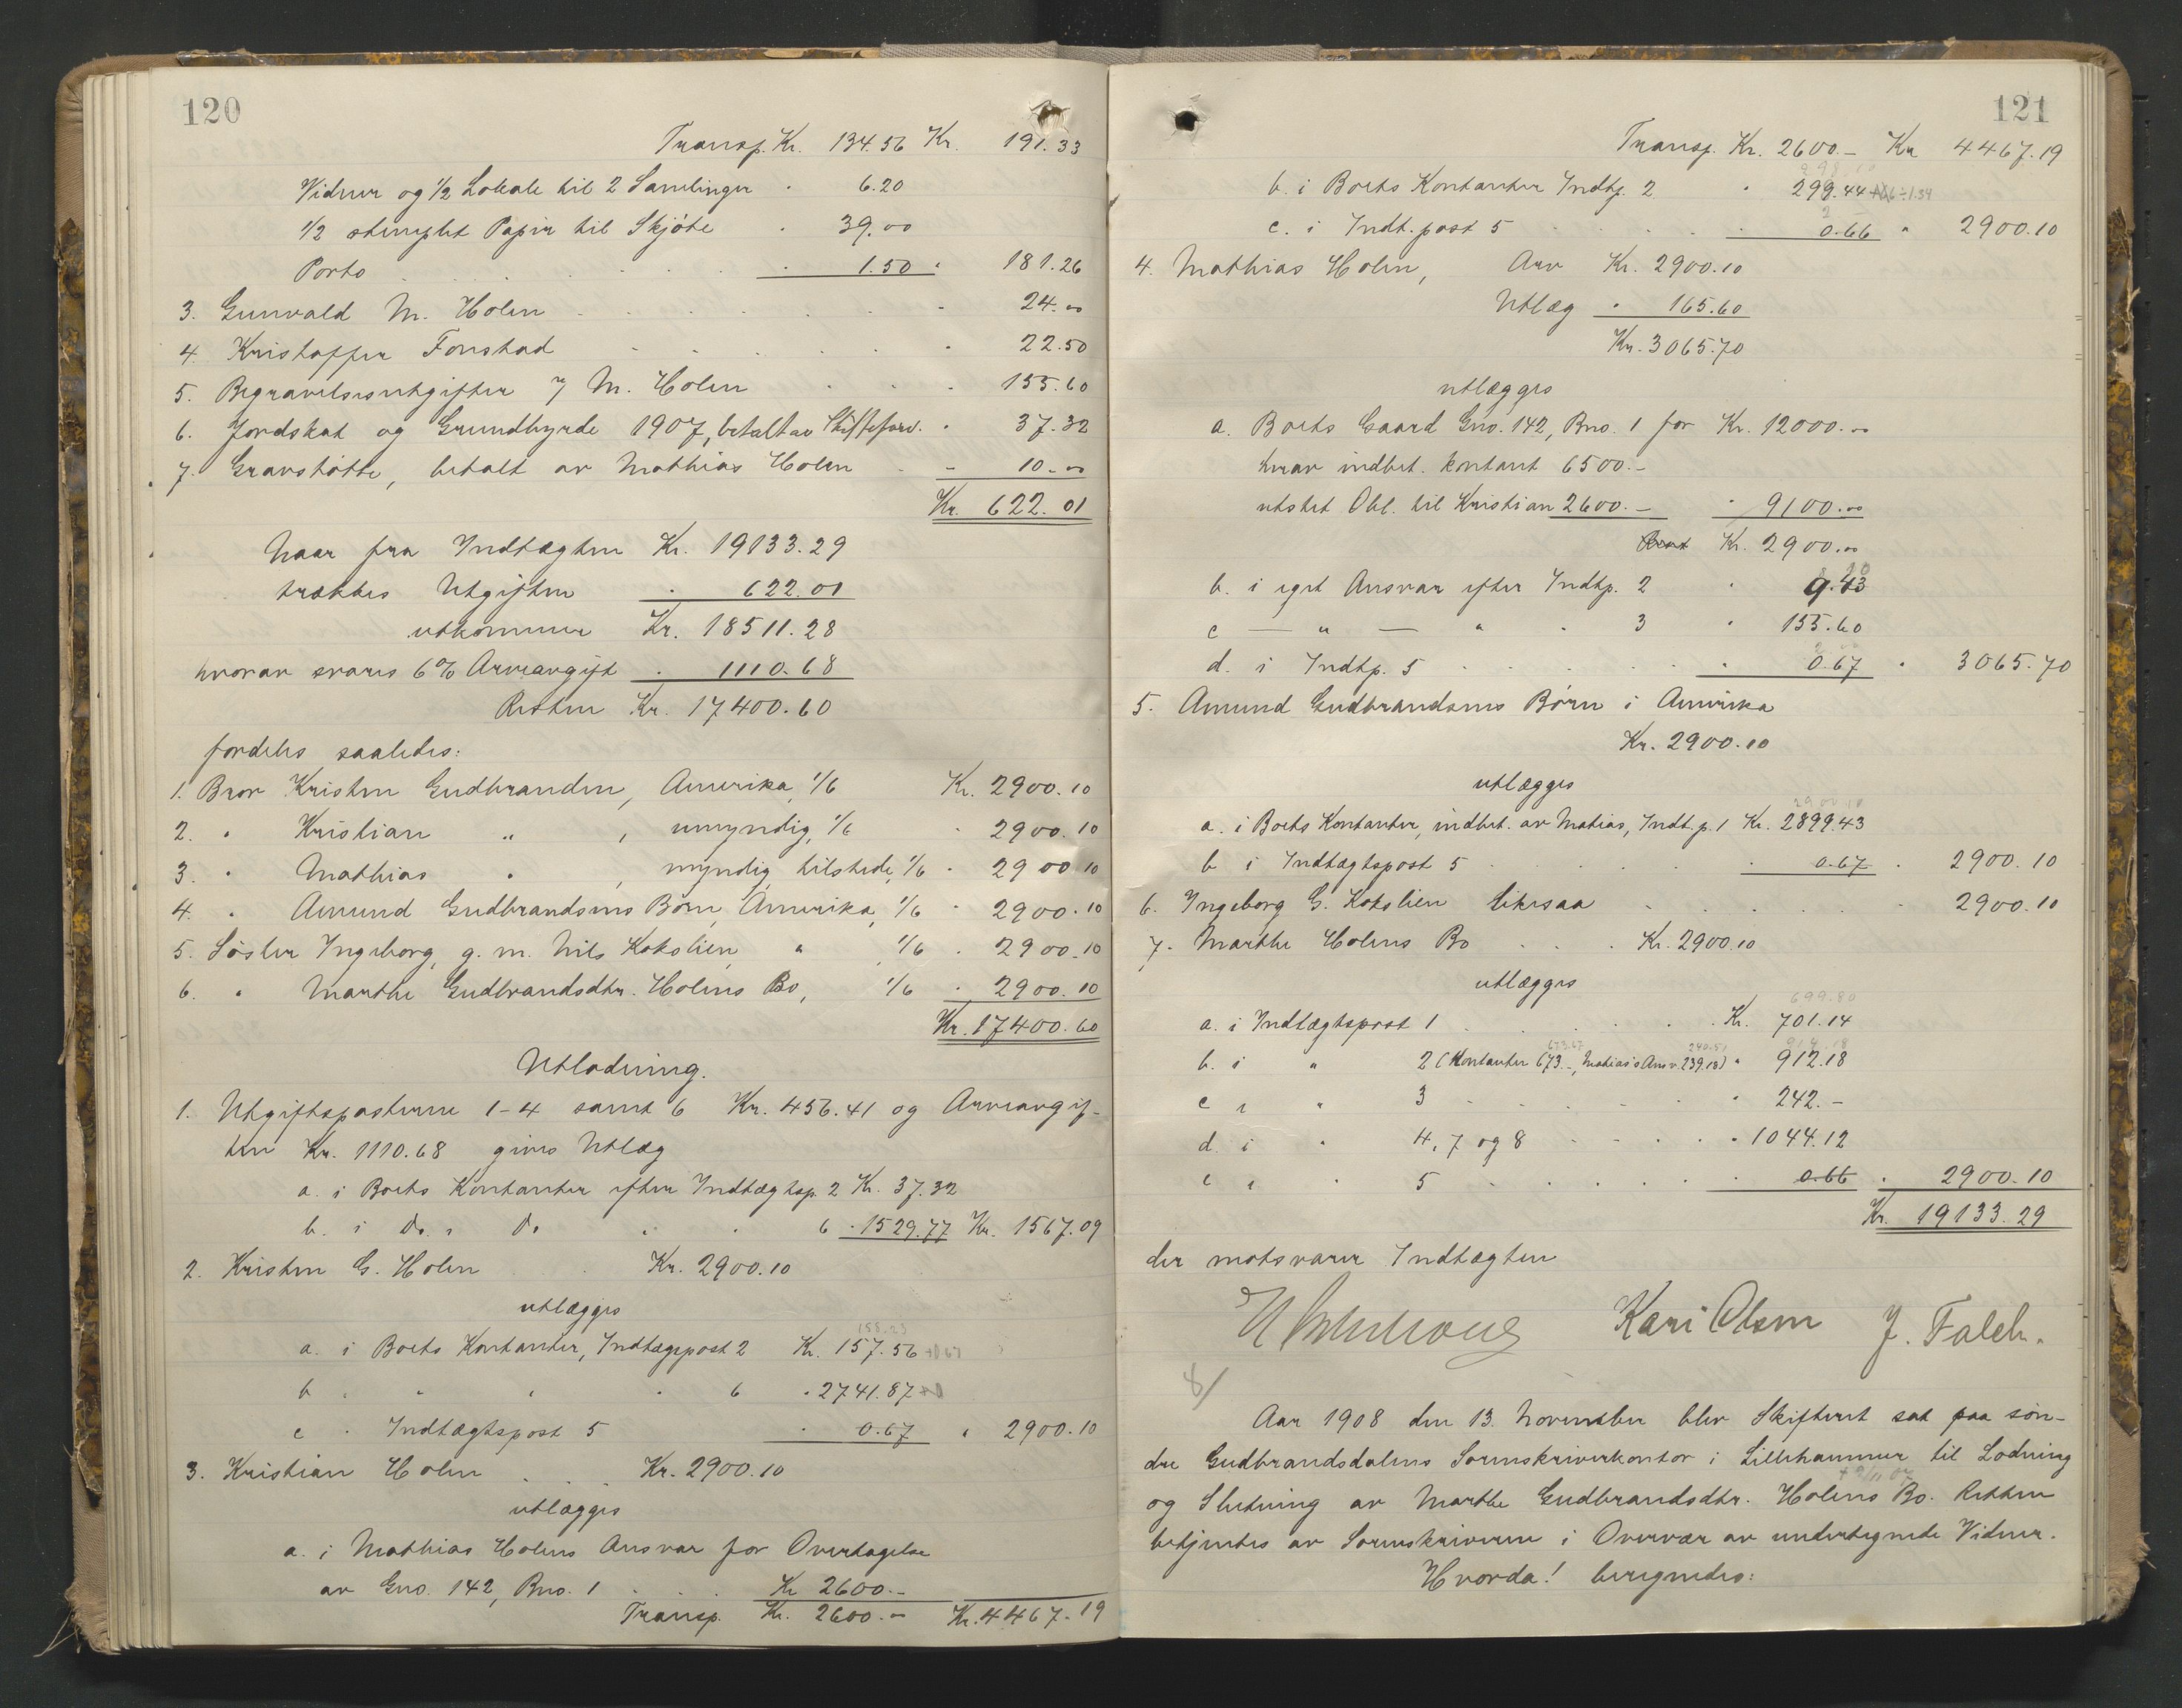 120
Transp. Kr. 134.56 Kr. 191.33
Vidner og 1/2 Lokale til 2 Samlinger " 6.20
1/2 stemplet Papir til Skjøte " 39.00
Porto . . . . . . " 1.50 " 181.26
3. Gunvald M. Holen . . . . . . " 24.00
4. Kristoffer Fonstad . . . . . " 22.50
5. Begravelsesutgifter M. Holen . . . " 155.60
6. Jordskat og Grundbyrde 1907, betalt av Skifteforv. " 37.32
7. Gravstøtte, betalt av Mathias Holen - " 10.00
Kr. 622.01
Naar fra Indtægten Kr. 19133.29
trækkes Utgiften " 622.01
utkommer Kr. 18511.28
hvorav svares 6% Arveavgift " 1110.68
Resten Kr. 17400.60
fordeles saaledes:
1. Bror Kristen Gudbrandsen, Amerika, 1/6 Kr. 2900.10
2. " Kristian " , umyndig, 1/6 " 2900.10
3. " Mathias " , myndig, tilstede, 1/6 " 2900.10
4. " Amund Gudbrandsens Børn, Amerika, 1/6 " 2900.10
5. Søster Ingeborg, g. m. Nils Kokslien, " , 1/6 " 2900.10
6. " Marthe Gudbrandsdtr. Holens Bo, 1/6 " 2900.10
Kr. 17400.60
Utlodning.
1. Utgiftsposterne 1-4 samt 6 Kr. 456.41 og Arveavgif-
ten Kr. 1110.68 gives Utlæg
a. i Boets Kontanter efter Indtægtsp. 2 Kr. 37.32
b. i Do. " Do " " 6 " 1529.77 Kr. 1567.09
2. Kristen G. Holen . . Kr. 2900.10
utlægges
158.23
a. i Boets Kontanter, Indtægspost 2 Kr. 157.56 +0.67
b " " " " 6 " 2741.87
c " Indtægtspost 5 " 0.67 " 2900.10
3. Kristian Holen . . . Kr. 2900.10
utlægges
a. i Mathias Holens Ansvar for Overtagelse
av Gno. 142, Bno. 1 . . . Kr 2600.-
Transp. Kr. 2600.- Kr. 4467.19
121
Transp. Kr. 2600.- Kr 4467.19
b. i Boets Kontanter Indtp. 2 " 299.44
c. i Indt. post 5 . . . . . " 0.66 " 2900.10
4. Mathias Holen, Arv Kr. 2900.10
Utlæg " 165.60
Kr. 3065.70
utlægges
a. Boets Gaard Gno. 142, Bno. 1 for Kr. 12000.00
hvorav indbet. kontant 6500.-
utstet Obl. til Kristian 2600.- " 9100.00
Rest Kr. 2900.00
b. i eget Ansvar efter Indtp. 2 " 9.43
c — " — " " 3 " 155.60
d. i Indtp. 5 . . . . . . " 0.67 " 3065.70
5. Amund Gudbrandsens Børn i Amerika
Kr. 2900.10
utlægges
2900.10
a. i Boets Kontanter, indbet. av Matias, Indt.p. 1 Kr. 2899.43
b i Indtægtspost 5 . . . . . " 0.67 " 2900.10
6. Ingeborg G. Kokslien likesaa . . . . . . " 2900.10
7. Marthe Holens Bo . . . Kr. 2900.10
utlægges
699.80
a. i Indtægtspost 1 . . . . . . Kr. 701.14
673.67 240.51 914.18
b. i " 2 (Kontanter 673.-, Mathias's Ansv. 239.18) " 912.18
c " " 3 - - - - - " 242.-
d. i " 4, 7 og 8 - - - - " 1044.12
e " " 5 . . . . . . " 0.66 " 2900.10
Kr. 19133.29
der motsvarer Indtægten
Kari Olsen J. Falch.
8/
Aar 1908 den 13. November blev Skifteret sat paa søn-
dre Gudbrandsdalens Sorenskriverkontor i Lillehammer til Lodning
og Slutning av Marthe Gudbrandsdtr. Holens Bo. Retten
betjentes av Sorenskriveren i Overvær av undertegnede Vidner.
Hvorda! beregnedes: